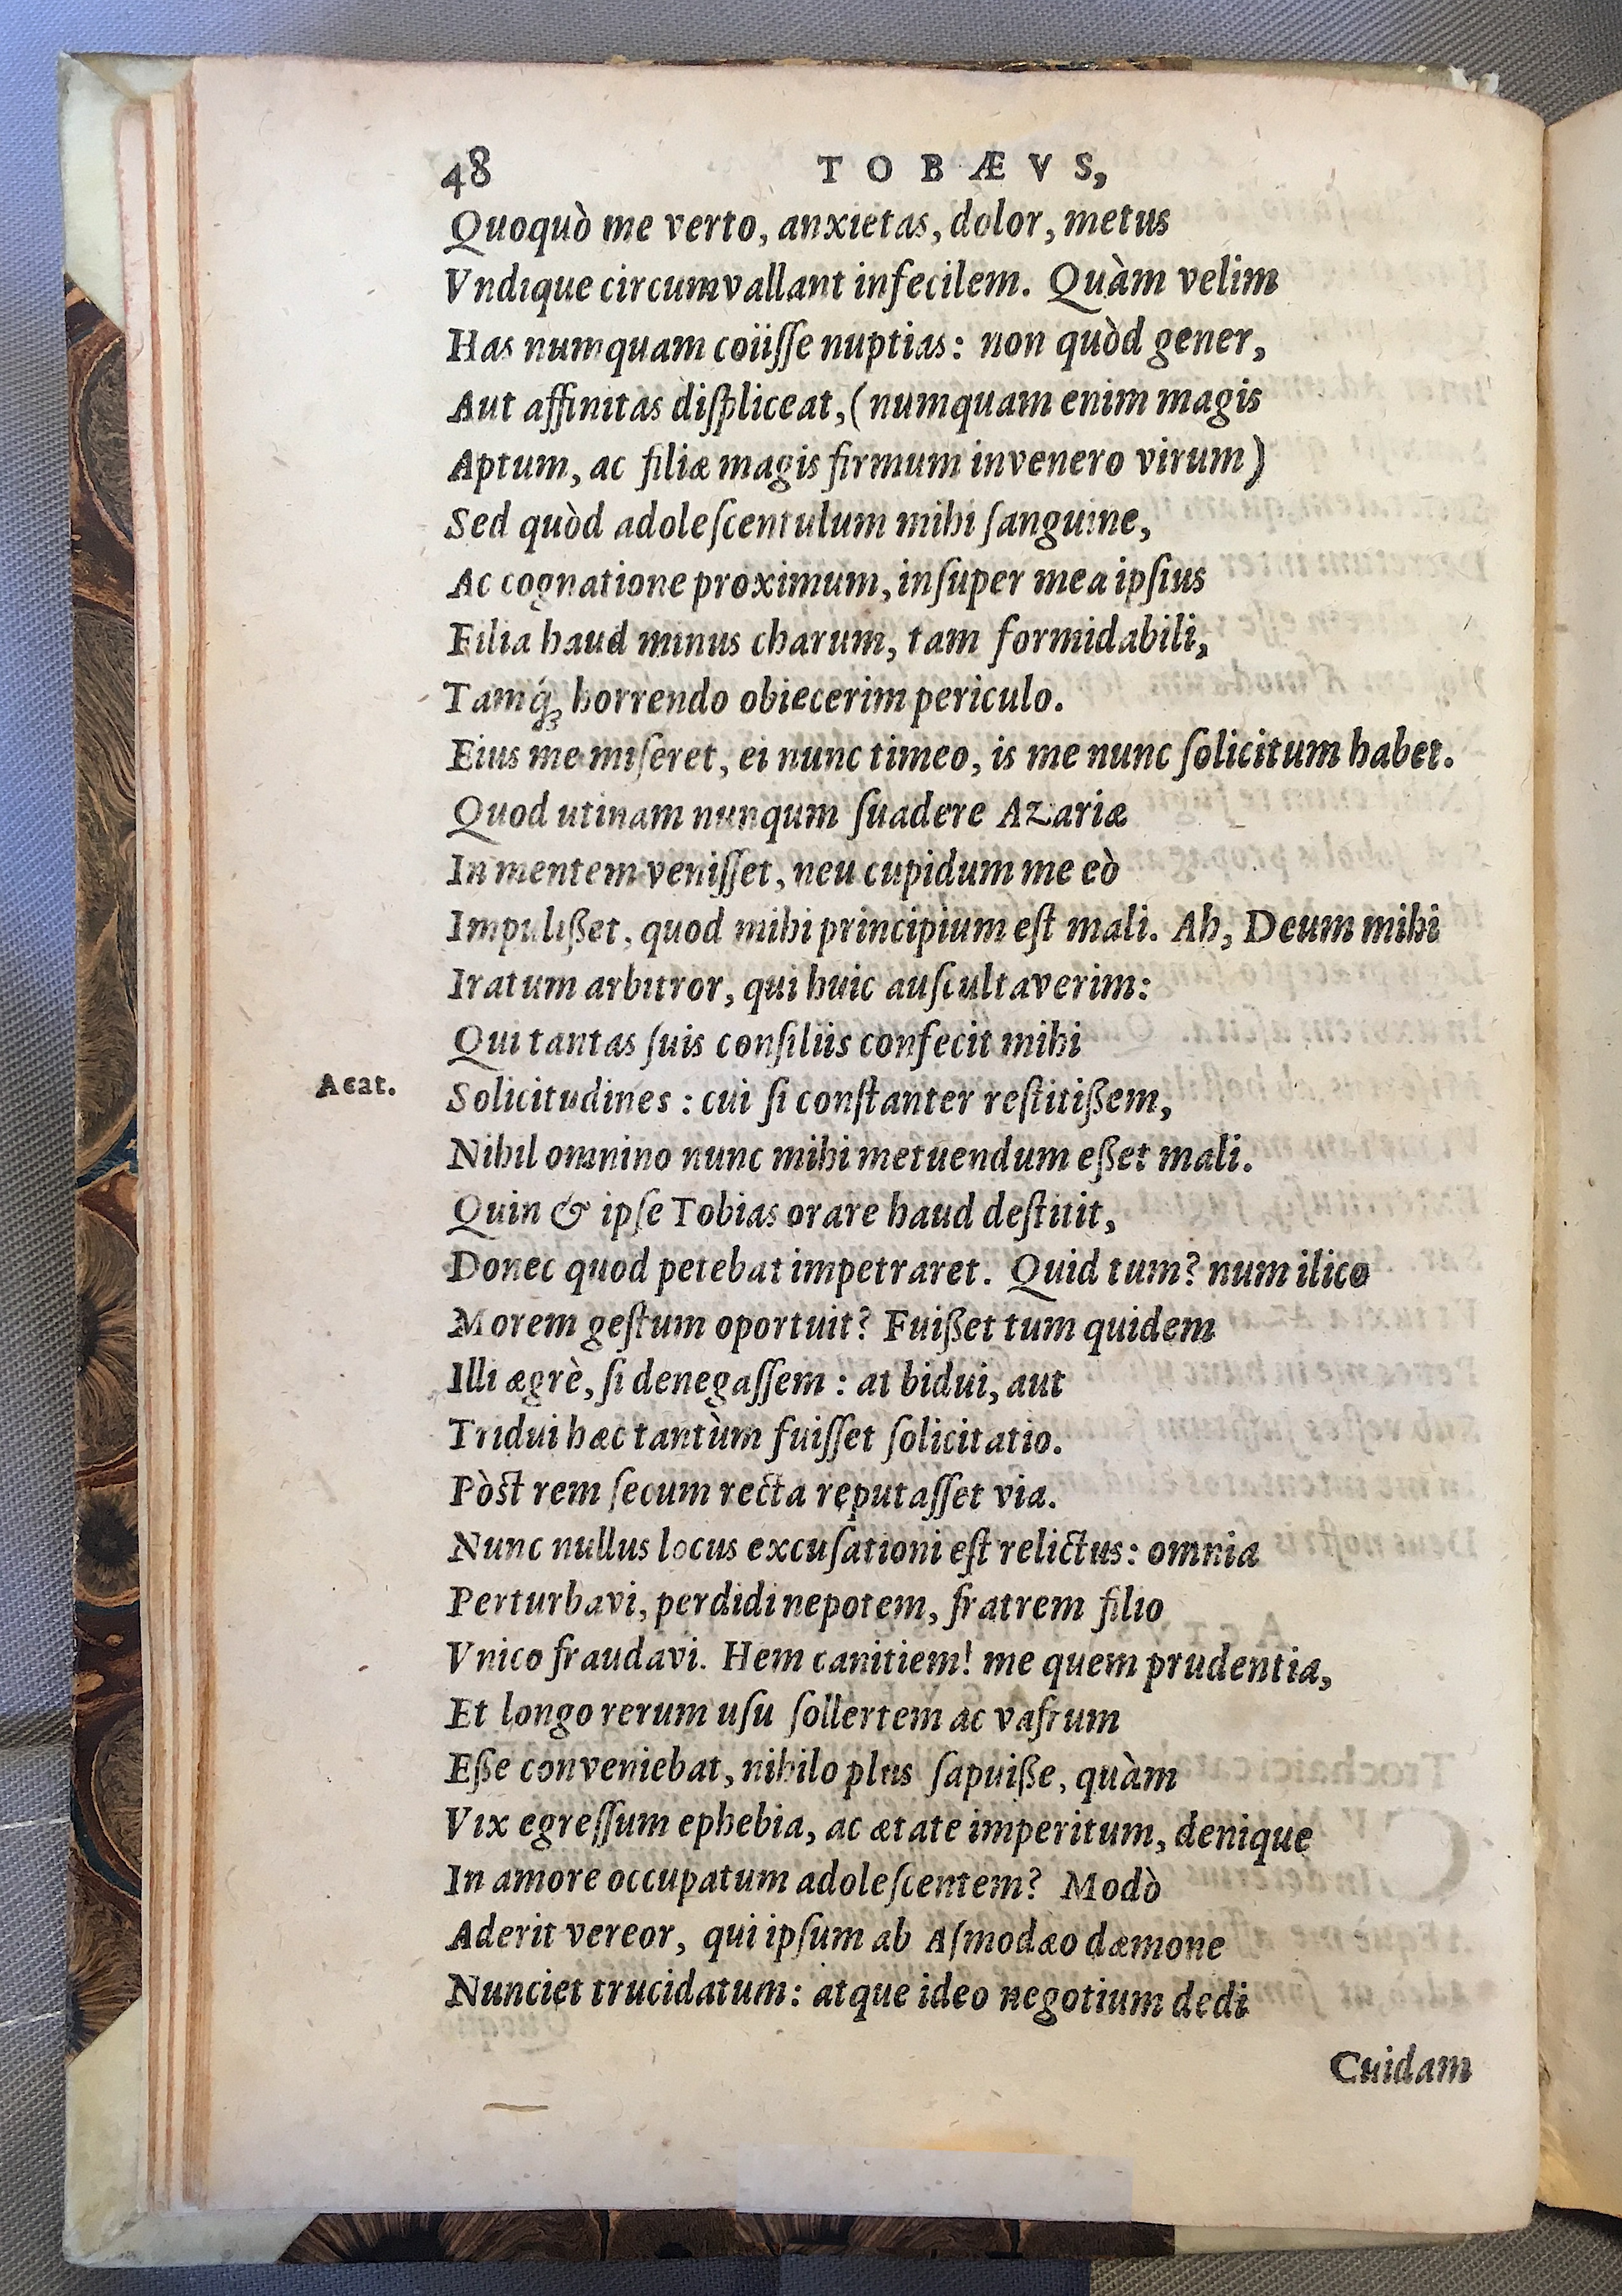 48 TOBÆVS,
Quoquò me verto, anxietas, dolor, metus
Vndique circumvallant infecilem. Quàm velim
Has numquam coiisse nuptias: non quòd gener,
Aut affinitas displiceat, (numquam enim magis
Aptum, ac filiæ magis firmum invenero virum)
Sed quòd adolescentulum mihi sanguine,
Ac cognatione proximum, insuper mea ipsius
Filia haud minus charum, tam formidabili,
Tamq́; horrendo obiecerim periculo.
Eius me miseret, ei nunc timeo, is me nunc solicitum habet.
Quod utinam nunqum suadere Azariæ
In mentem venisset, neu cupidum me eò
Impulißet, quod mihi principium est mali. Ah, Deum mihi
Iratum arbitror, qui huic auscultaverim:
Qui tantas suis consiliis confecit mihi
Acat. Solicitudines: cui si constanter restitißem,
Nihil omnino nunc mihi metuendum eßet mali.
Quin & ipse Tobias orare haud destitit,
Donec quod petebat impetraret. Quid tum? num ilico
Morem gestum oportuit? Fuißet tum quidem
Illi ægrè, si denegassem: at bidui, aut
Tridui hæc tantùm fuisset solicitatio.
Pòst rem secum recta reputasset via.
Nunc nullus locus excusationi est relictus: omnia
Perturbavi, perdidi nepotem, fratrem filio
Vnico fraudavi. Hem canitiem! me quem prudentia,
Et longo rerum usu sollertem ac vafrum
Eße conveniebat, nihilo plus sapuiße, quàm
Vix egressum ephebia, ac ætate imperitum, denique
In amore occupatum adolescentem? Modò
Aderit vereor, qui ipsum ab Asmodæo dæmone
Nunciet trucidatum: atque ideo negotium dedi
Cuidam